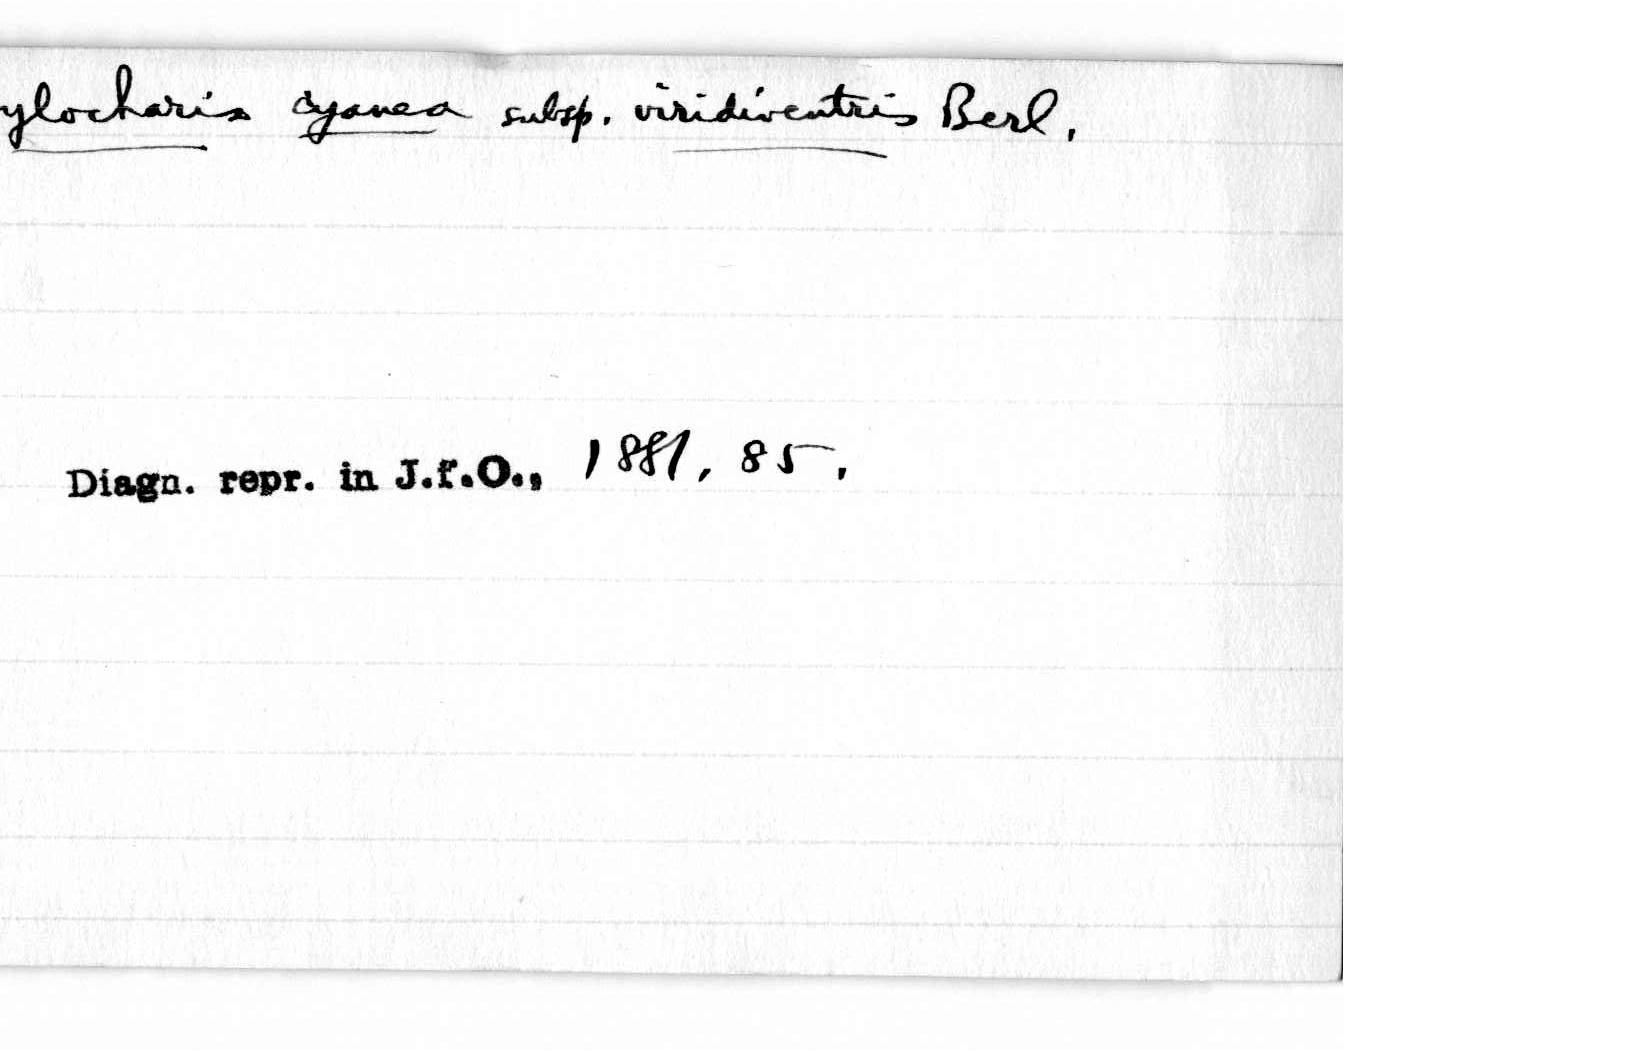 ylocharis cyanea subsp. viridiventris Berl.
Diagn. repr. in J.f.O., 1881, 85.